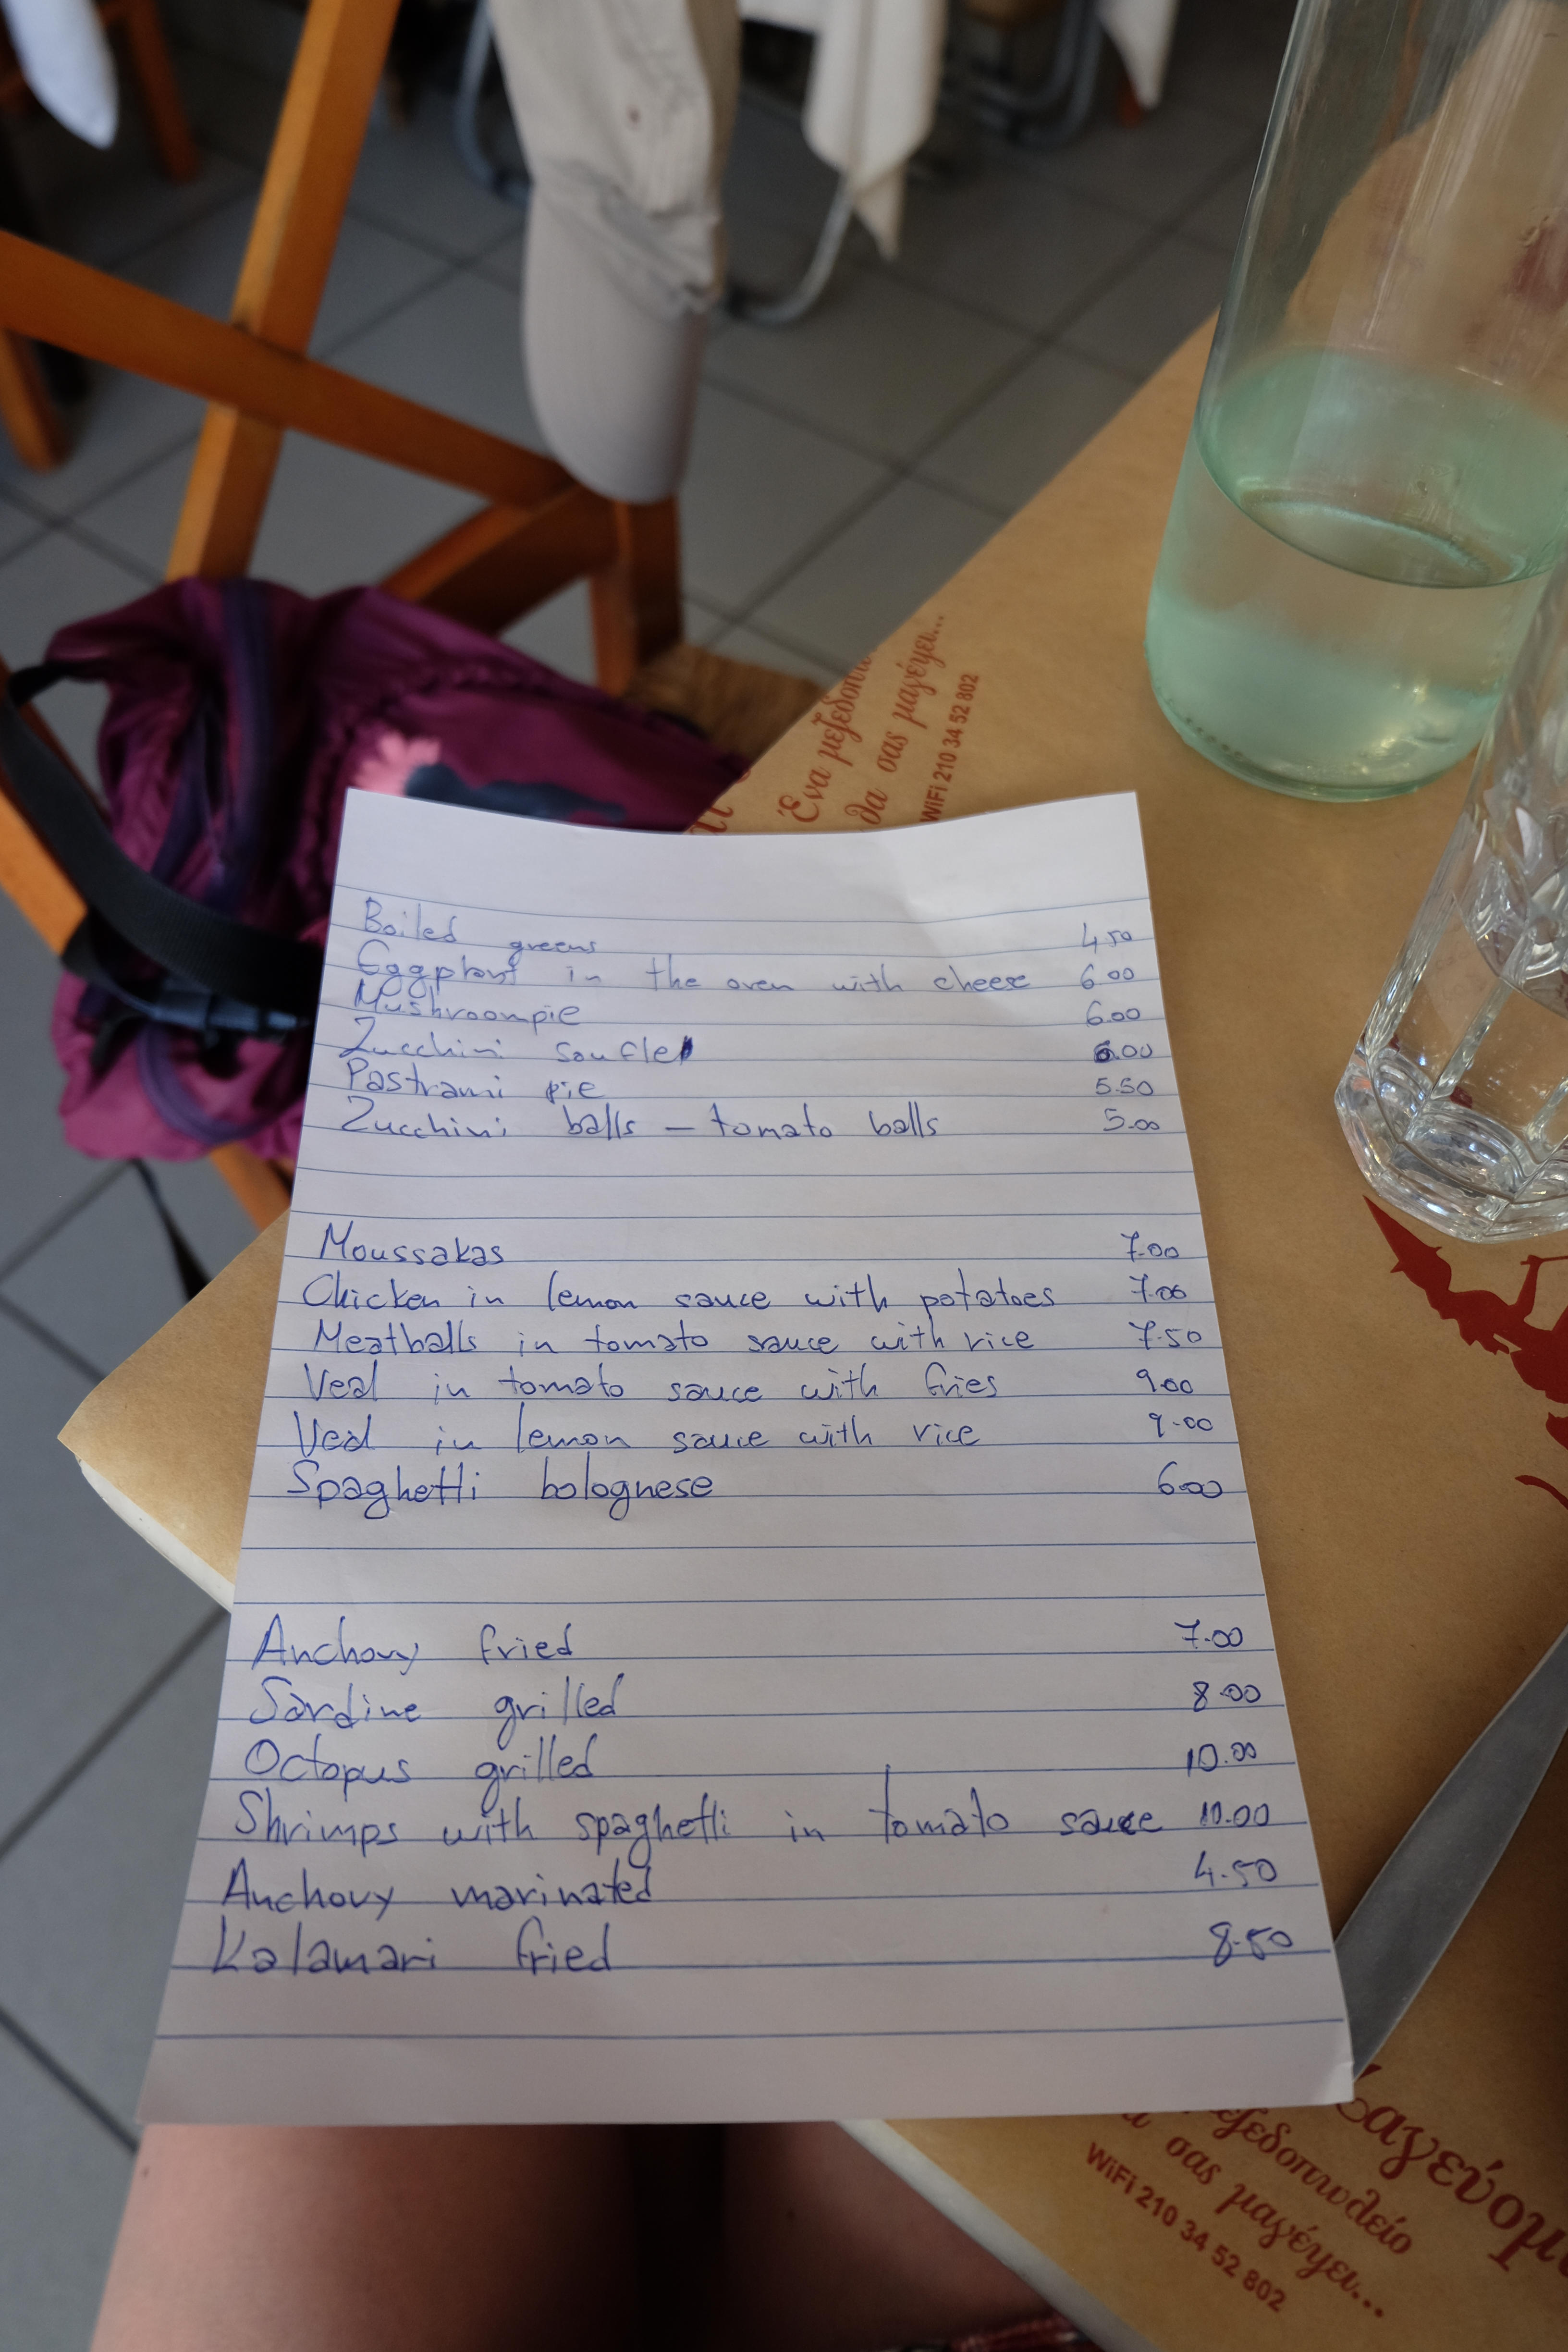 Ένα μεζεδοπω
θα σας μαγέψει...
WiFi 210 34 52 802
Boiled greens 4.50
Eggplant in the oven with cheese 6.00
Mushroompie 6.00
Zucchini soufle 6.00
Pastrami pie 5.50
Zucchini balls - tomato balls 5.00
Moussakas 7.00
Chicken in lemon sauce with potatoes 7.00
Meatballs in tomato sauce with rice 7.50
Veal in tomato sauce with fries 9.00
Veal in lemon sauce with rice 9.00
Spaghetti bolognese 6.00
Anchovy fried 7.00
Sardine grilled 8.00
Octopus grilled 10.00
Shrimps with spaghetti in tomato sauce 10.00
Anchovy marinated 4.50
Kalamari fried 8.50
μαγεύομ
εζεδοπωλείο
α σας μαγέψει...
WiFi 210 34 52 802